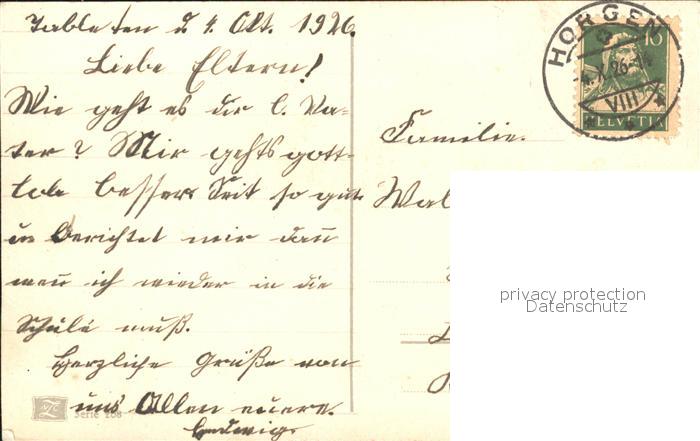 Tableten d 4. Okt. 1926.
Liebe Eltern!
Wie geht es dir l. Va-
ter? Mir gehts gott-
lob besser. Seit so gut
u berichtet mir dan
wen ich wieder in die
Schule muß.
Herzliche Grüße von
uns Allen euere.
Hedwig
Serie 268
Familie.
HORGEN
4.X.26-14
VIII
10
HELVETIA
privacy protection
Datenschutz